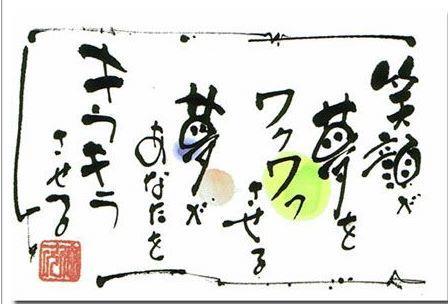 笑顔が
夢を
ワクワク
させる
夢が
あなたを
キラキラ
させる